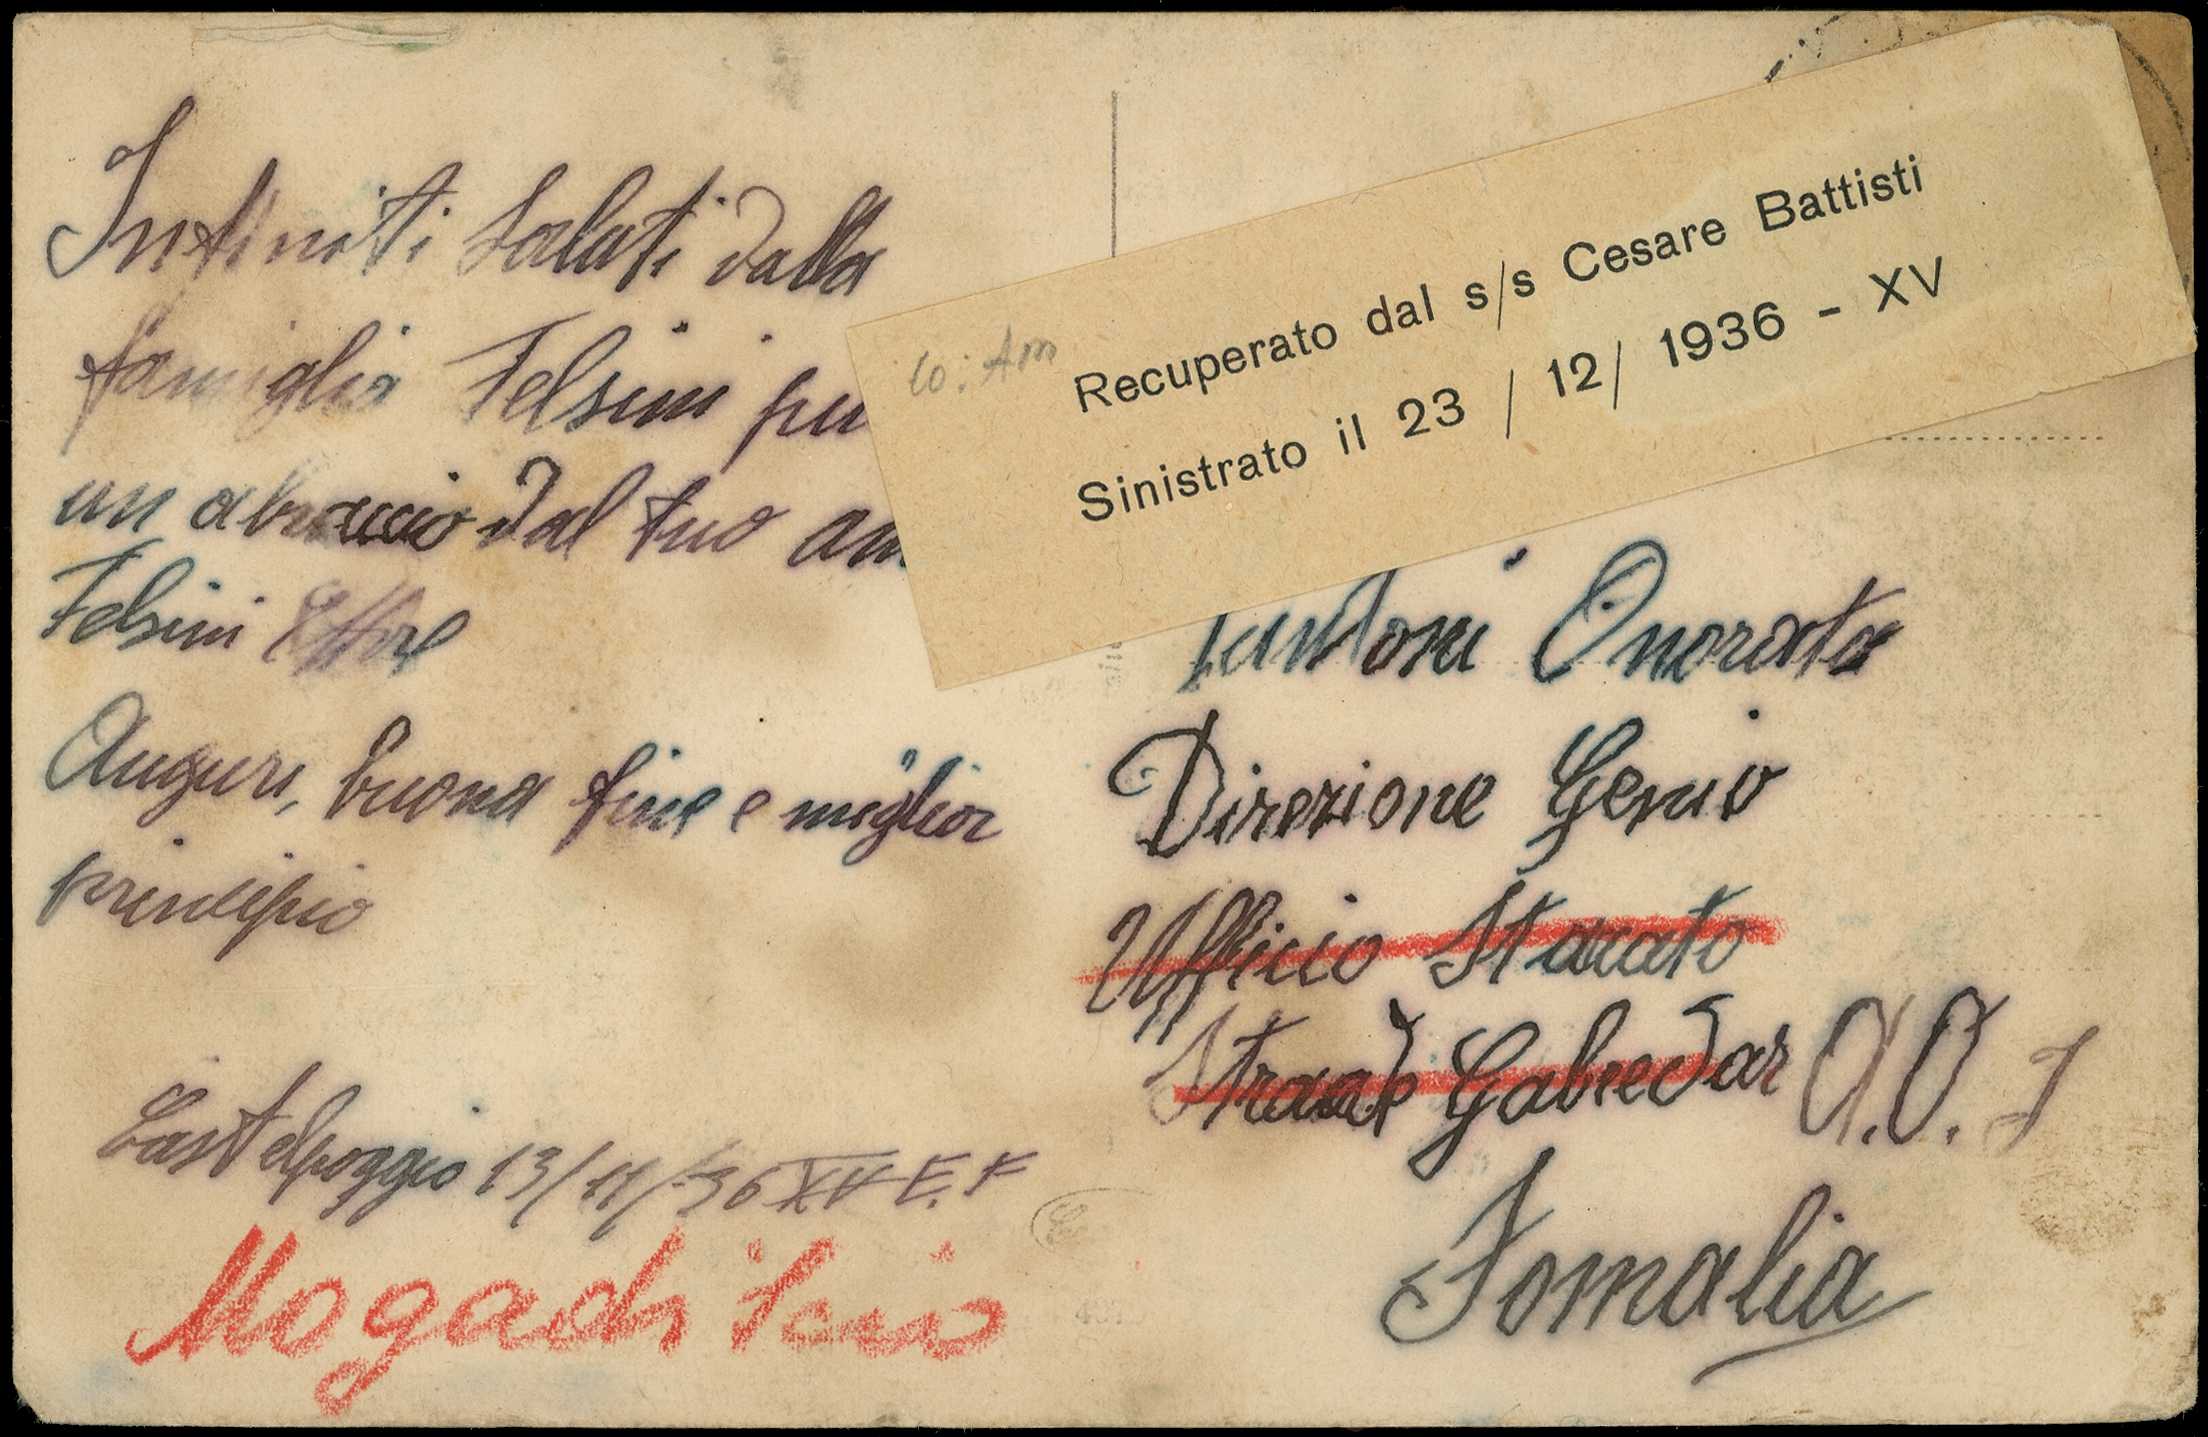 Infiniti saluti dalla
famiglia Felsini piu
un abraccio dal tuo am
Felsini Ettore
Auguri, buona fine e miglior
principio
Castelpoggio 13/11/36 XV E.F
Mogadiscio
Recuperato dal s/s Cesare Battisti
Sinistrato il 23 / 12/ 1936 - XV
Onorato
Direzione Genio
Ufficio Stacato
Strade Gabredar A.O. I
Somalia